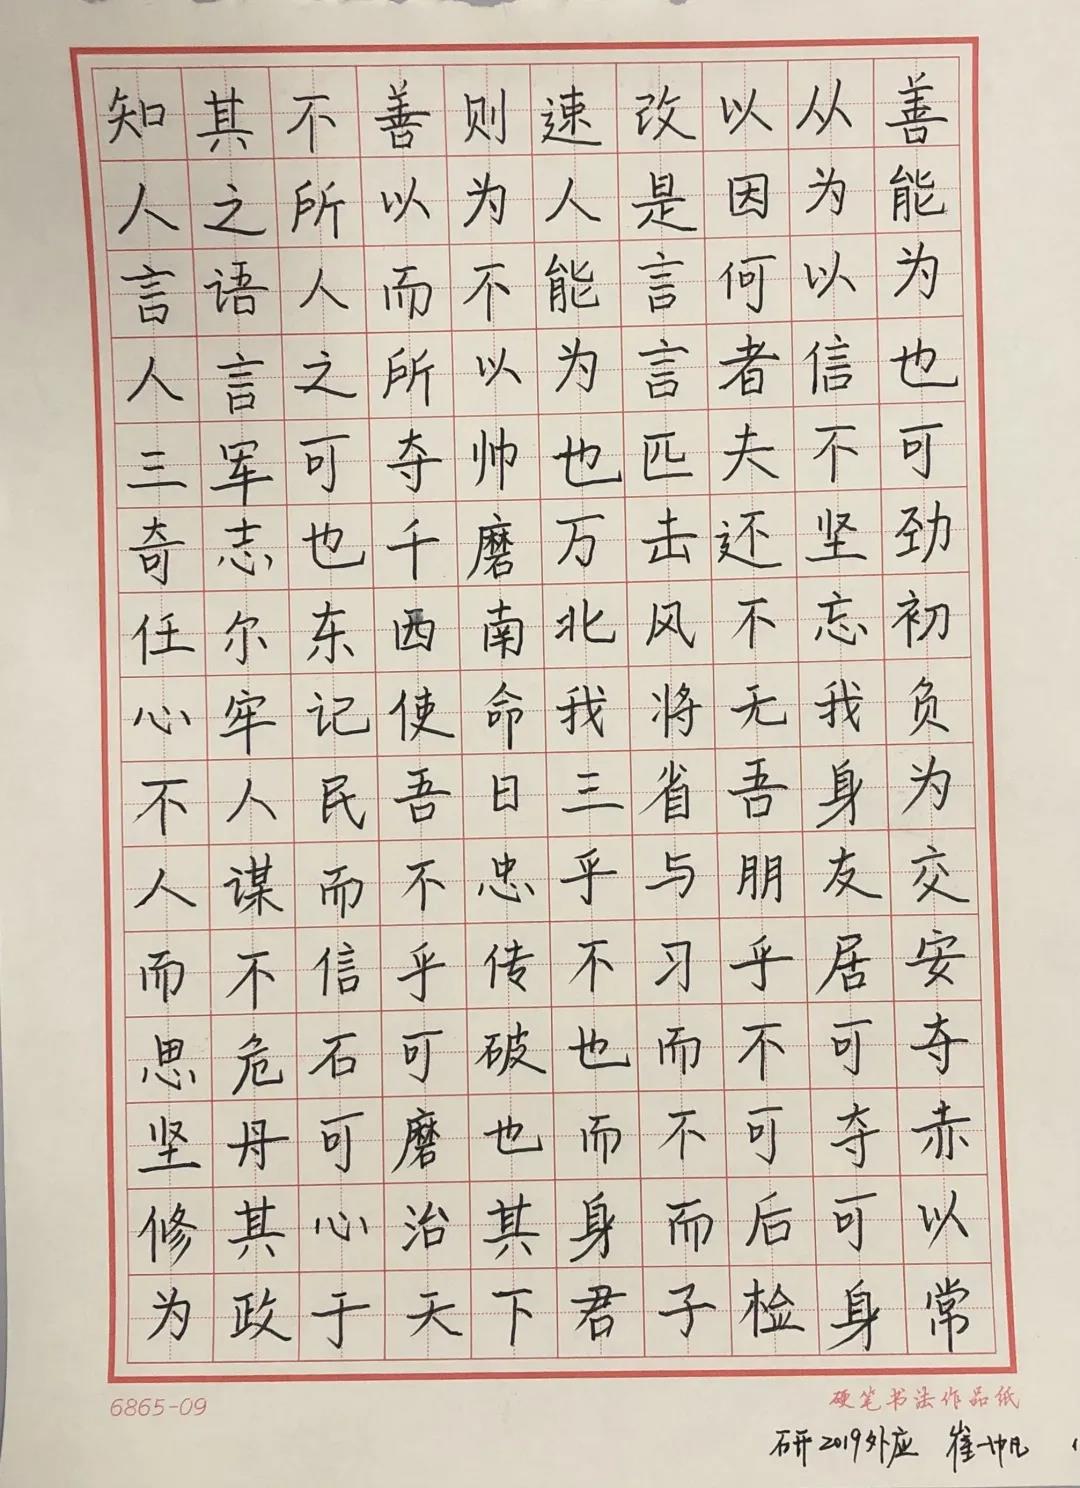 知其不善则速改以从善
人之所以为人是因为能
言语人而不能言何以为
人言之所以为言者信也
三军可夺帅也匹夫不可
奇志也千磨万击还坚劲
任尔东西南北风不忘初
心牢记使命我将无我负
不人民吾日三省吾身为
人谋而不忠乎与朋友交
而不信乎传不习乎居安
思危石可破也而不可夺
坚丹可磨也而不可夺赤
修其心治其身而后可以
为政于天下君子检身常
6865-09
硬笔书法作品纸
研2019外应 崔一帆